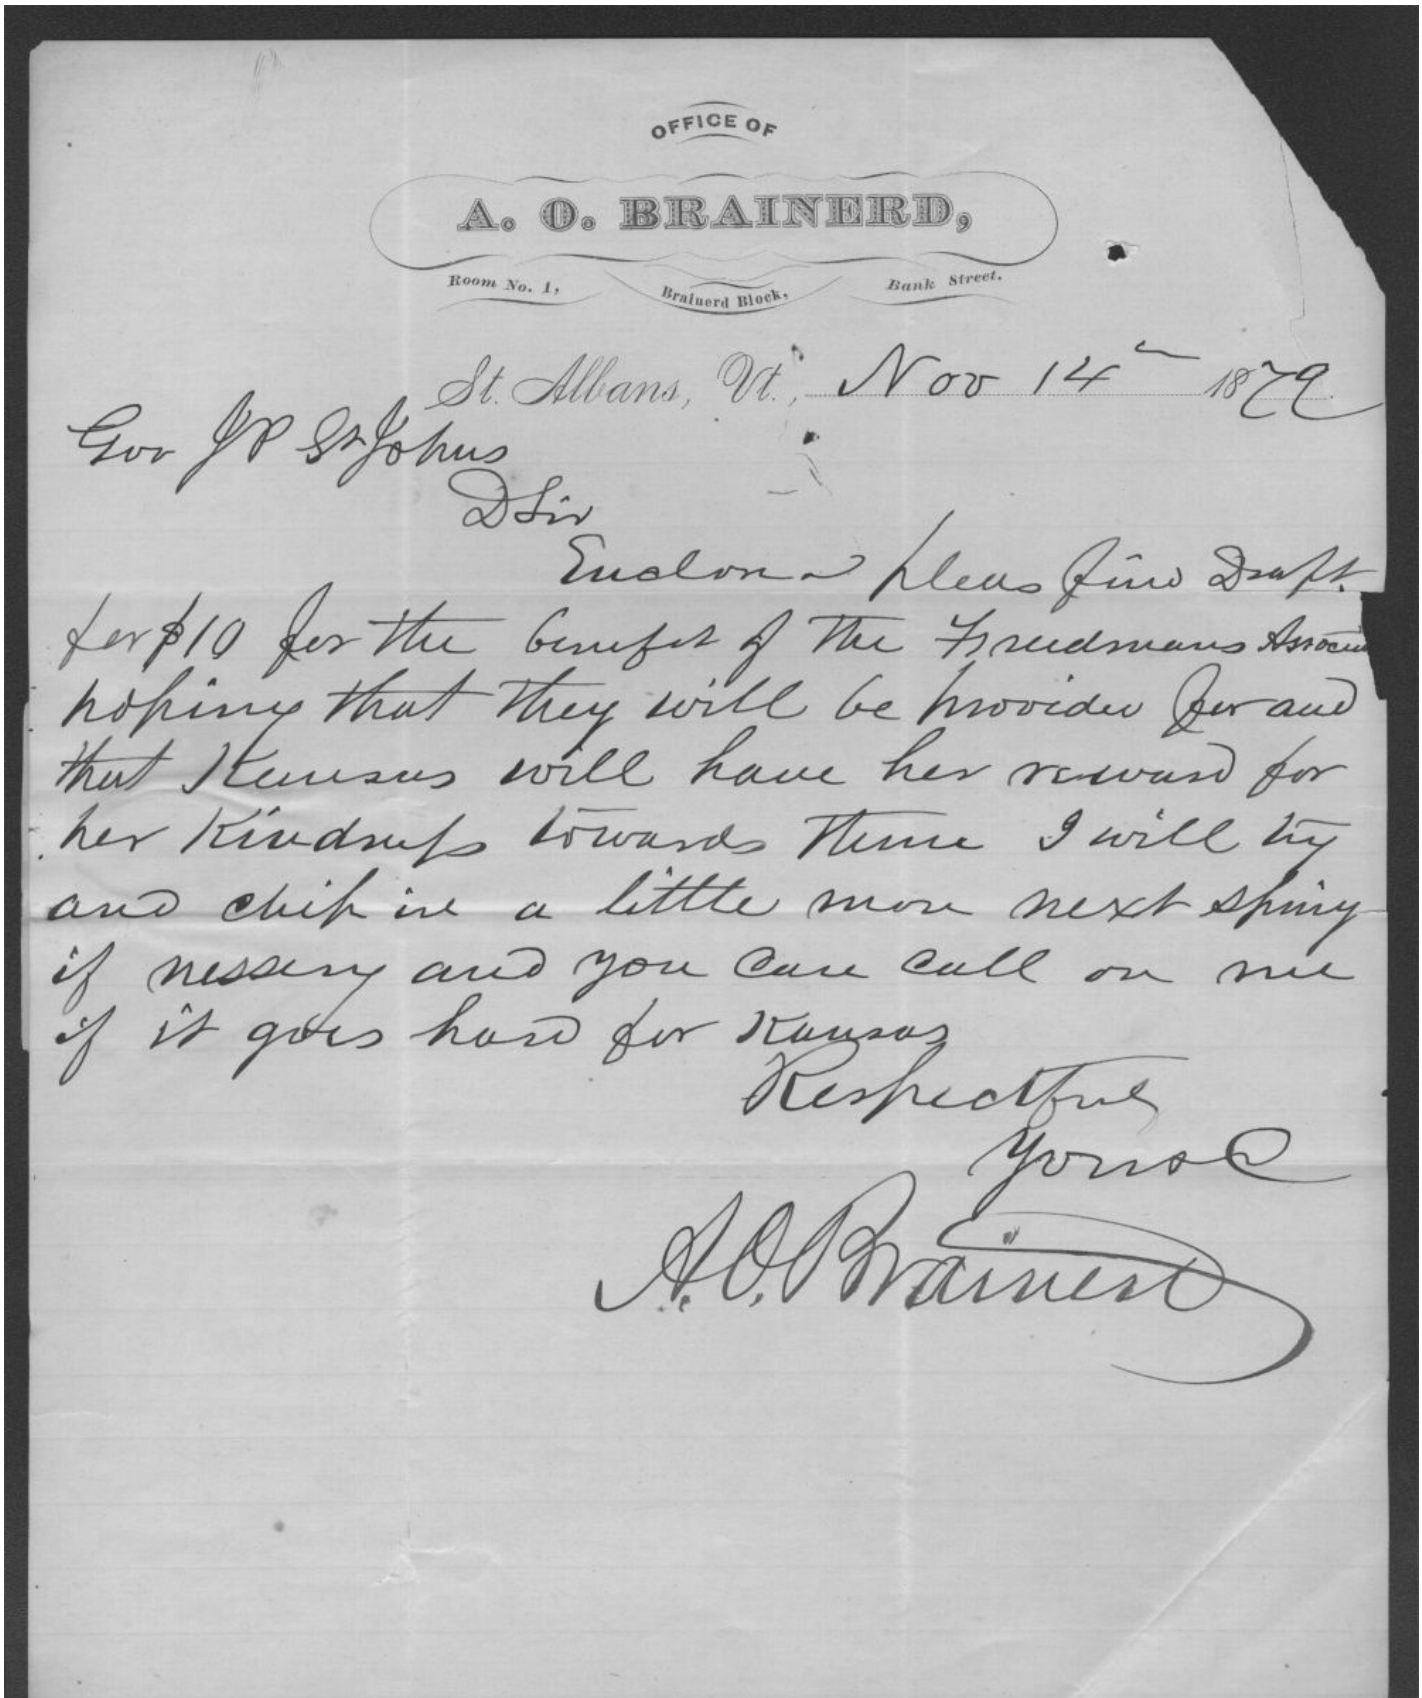 OFFICE OF
A. O. BRAINERD,
Room No. 1, Brainerd Block, Bank Street.
St. Albans, Vt., Nov 14th 1879
Gov J P St Johns
D Sir
Enclosed pleas find Draft.
for $10 for the benefit of the Freedmans Associa
hoping that they will be provided for and
that Kansas will have her reward for
her Kindness towards them I will try
and chip in a little more next spring
if nessery and you can call on me
if it goes hard for Kansas
Respectful
Yours
A. O. Brainerd